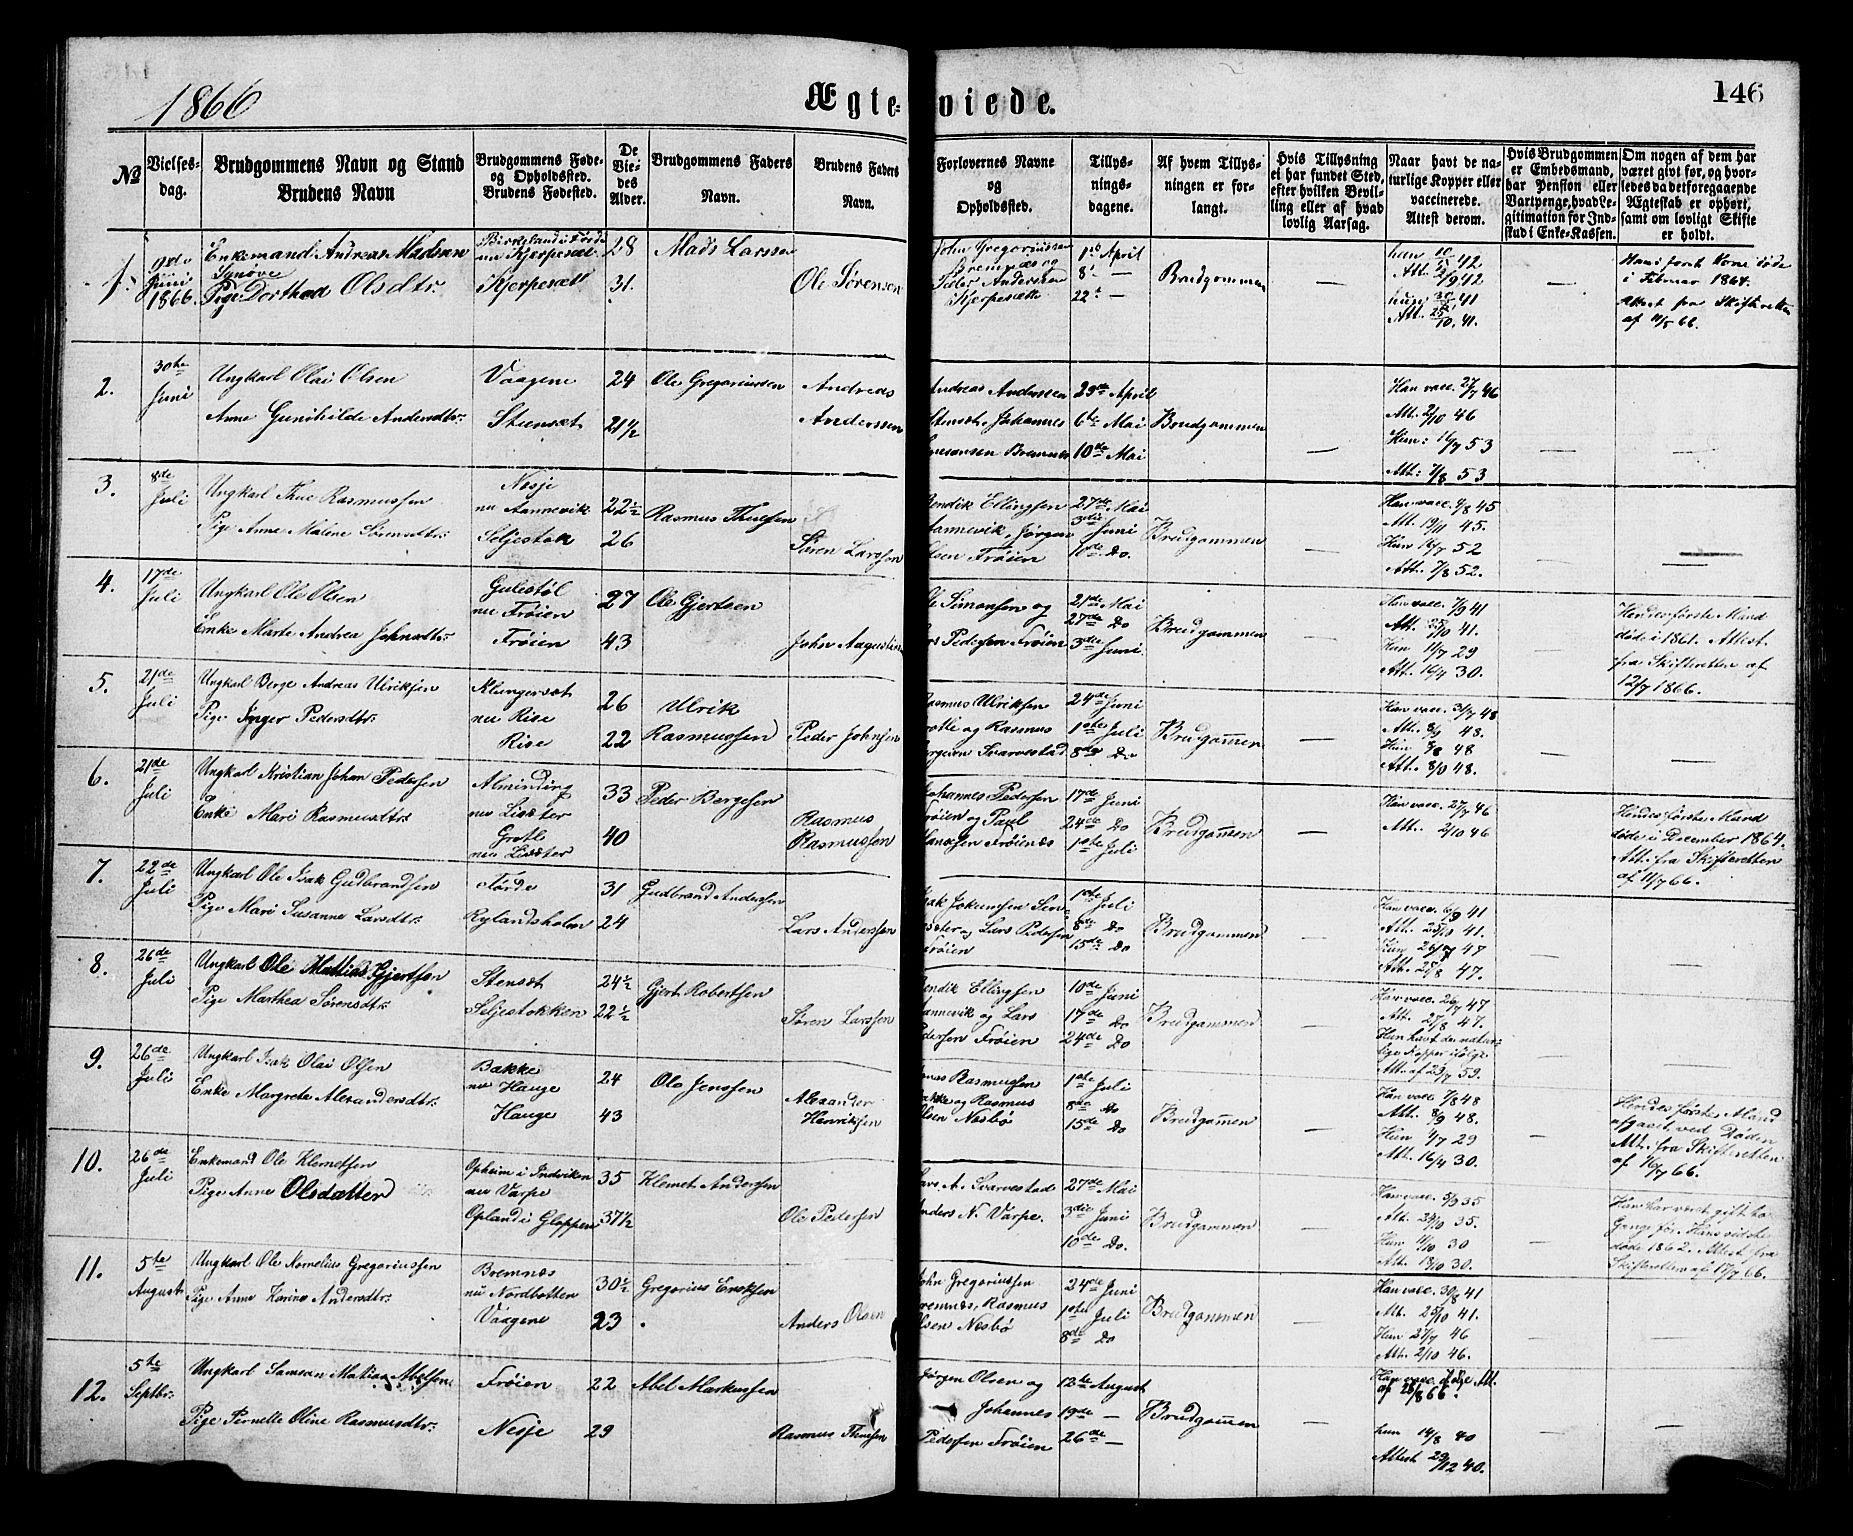 1866
Ægte-
viede.
146
№
Vielses-
dag.
Brudgommens Navn og Stand
Brudens Navn
Brudgommens Føde-
og Opholdssted.
Brudens Fødested.
De
Vie-
des
Alder.
Brudgommens Faders
Navn.
Brudens Faders
Navn.
Forlovernes Navne
og
Opholdssted.
Tillys-
nings-
dagene.
Af hvem Tillys-
ningen er for-
langt.
Hvis Tillysning
ei har fundet Sted,
efter hvilken Bevil-
ling eller af hvad
lovlig Aarsag.
Naar havt de na-
turlige Kopper eller
vaccinerede.
Attest derom.
Hvis Brudgommen
er Embedsmand,
har Pension eller
Vartpenge, hvad Le-
gitimation for Ind-
skud i Enke-Kassen.
Om nogen af dem har
været givt før, og hvor-
ledes da det foregaaende
Ægteskab er ophørt,
samt om lovligt Skifte
er holdt.
1.
Juni
1866.
Enkemand Andreas Madsen
Synøve
Pige Dorthea Olsdtr.
Birkeland i Førde
nu Kjerpesæt
Kjerpesæt
28
31.
Mads Larssen
Ole Sørensen
John Gregoriussen
Bremnæs og
Peder Anderssen
Kjerpesætte
1ste April
8de —
22de —
Brudgommen
—
42
Att. 2/9 42
hun: 30/ 41
Att. 25/10. 41.
—
Hans første Kone døde
i Februar 1864.
Attest fra Skifteretten
af 11/5 66.
2.
30te
Juni
Ungkarl Olai Olsen
Anne Gunihilde Andersdtr.
Vaagene
Stensæt
24
21 1/2
Ole Gregoriussen
Andreas
Anderssen
Andreas Anderssen
Stensæt, Johannes
Bremnes
29de April
6te Mai
10de Mai
Brudgommen
—
Han vacc. 27/7 46
Att. 2/10 46
Hun: 16/7 53
Att: 7/8 53
—
3.
8de
Juli
Ungkarl Thue Rasmussen
Pige Anne Malene Sørensdtr.
Nesje
nu Aannevik
Seljestok
22 1/2
26
Rasmus Thuesen
Søren Larssen
Bendik Ellingsen
Aannevik, Jørgen
Olsen Frøien
27de Mai
3die Juni
10de Do
Brudgommen
—
Han vacc. 7/8 45
Att. 19/11 45.
Hun 16/7 52
Att. 7/8 52.
—
—
4.
17de
Juli
Ungkarl Ole Olsen
Enke Marte Andrea Johnsdtr.
Gulestøl
nu Frøien
Frøien
27
43
Ole Gjertsen
John Augustin
Ole Simonsen og
Lars Pedersen Frøien
21de Mai
27de Do
3die Juni
Brudgommen
—
Han vacc. 7/9 41
Att. 25/10 41.
Hun 11/7 29
Att. 16/4 30.
—
Hendes første Mand
døde i 1861. Attest
fra Skifteretten af
12/7 1866.
5.
21de
Juli
Ungkarl Berge Andreas Ulriksen
Pige Inger Pedersdtr.
Klungersæt
nu Rise
Rise
26
22
Ulrik
Rasmussen
Peder Johnsen
Rasmus Ulriksen
Grotle og Rasmus
Jørgensen Svarvestad
24de Juni
1ste Juli
8de Do
Brudgommen
—
Han vacc. 31/7 48
Att. 8/9 48.
Hun 7/8 48
Att. 8/9 48.
—
—
6.
21de
Juli
Ungkarl Kristian Johan Pedersen
Enke Mari Rasmusdtr.
Alminding
nu Lisæter
Grotle
nu Lisæter
33
40
Peder Bergesen
Rasmus
Rasmussen
Johannes Pedersen
Frøien og Paul
Hanssen Frøienæs
17de Juni
24de Do
1ste Juli
Brudgommen
—
Han vacc. 27/7 46
Att. 2/10 46
—
Hendes første Mand
døde i December 1864.
Att. fra Skifteretten
af 11/7 66.
7.
22de
Juli
Ungkarl Ole Isak Gudbrandsen
Pige Mari Susanne Larsdtr.
Førde
Rylandsholm
31
24
Gudbrand Anderssen
Lars Anderssen
og Lars Pedersen
Frøien
1ste Juli
8de Do
15de Do
Brudgommen
—
Han vacc. 6/9 41
Att. 25/10 41.
Hun 26/7 47
Att. 27/8 47.
—
—
8.
26de
Juli
Ungkarl Ole Mattias Gjertsen
Pige Marthea Sørensdtr.
Stensæt
Seljestokken
24 1/2
22 1/2
Gjert Robertsen
Søren Larssen
Bendik Ellingsen
Aannevik og Lars
Pedersen Frøien
10de Juni
17de Do
24de Do
Brudgommen
—
Han vacc. 26/7 47
Att. 27/8 47.
Hun havt de natur-
lige Kopper ifølge
Att. af 23/7 59.
—
—
9.
26de
Juli
Ungkarl Isak Olai Olsen
Enke Margrete Alexandersdtr.
Bakke
nu Hauge
Hauge
24
43
Ole Jenssen
Alexander
Henriksen
Jonas Rasmussen
Bakke og Rasmus
Olsen Nesbø
1ste Juli
8de Do
15de Do
Brudgommen
—
Han vacc 7/8 48
Att. 8/9 48.
Hun 4/7 29
Att. 16/4 30.
—
Hendes første Mand
afgaaet ved Døden
Att. fra Skifteretten
af 16/7 66.
10.
26de
Juli
Enkemand Ole Klemetsen
Pige Anne Olsdatter
Opheim i Indviken
nu Varpe
Opland i Gloppen
35
37 1/2
Klemet Anderssen
Ole Pedersen
Lars A. Svarvestad
Anders N. Varpe.
27de Mai
3die Juni
10de Do.
Brudgommen
—
Han vacc. 5/9 35
Att. 24/10 35.
Hun 11/10 30
Att. 13/10 30.
—
Han har været gift to
Gange før. Hans sidste
døde 1862. Attest fra
Skifteretten af 17/7 66.
11.
5te
August
Ungkarl Ole Kornelius Gregoriussen
Pige Anne Karine Andersdtr.
Bremnæs
nu Nordbotten
Vaagene
30 1/2
23
Gregorius Enoksen
Anders Olsen
John Gregoriussen
Bremnæs, Rasmus
Olsen Nesbø
24de Juni
1ste Juli
8de Do
Brudgommen
—
Han vacc. 30/8 41
Att. 25/10 41.
Hun 27/7 46
Att. 2/10 46.
—
—
12.
5te
Septbr.
Ungkarl Samson Matias Abelsen
Pige Pernelle Oline Rasmusdtr.
Frøien
Nesje
22
29
Abel Markussen
Rasmus Thuesen
Jørgen Olsen og
Johannes
Pedersen Frøien
12te August
19de —
26de —
Brudgommen
—
Han vacc. ifølge Att.
af 28/8 66.
hun 14/8 40
Attest 29/12 40.
—
—